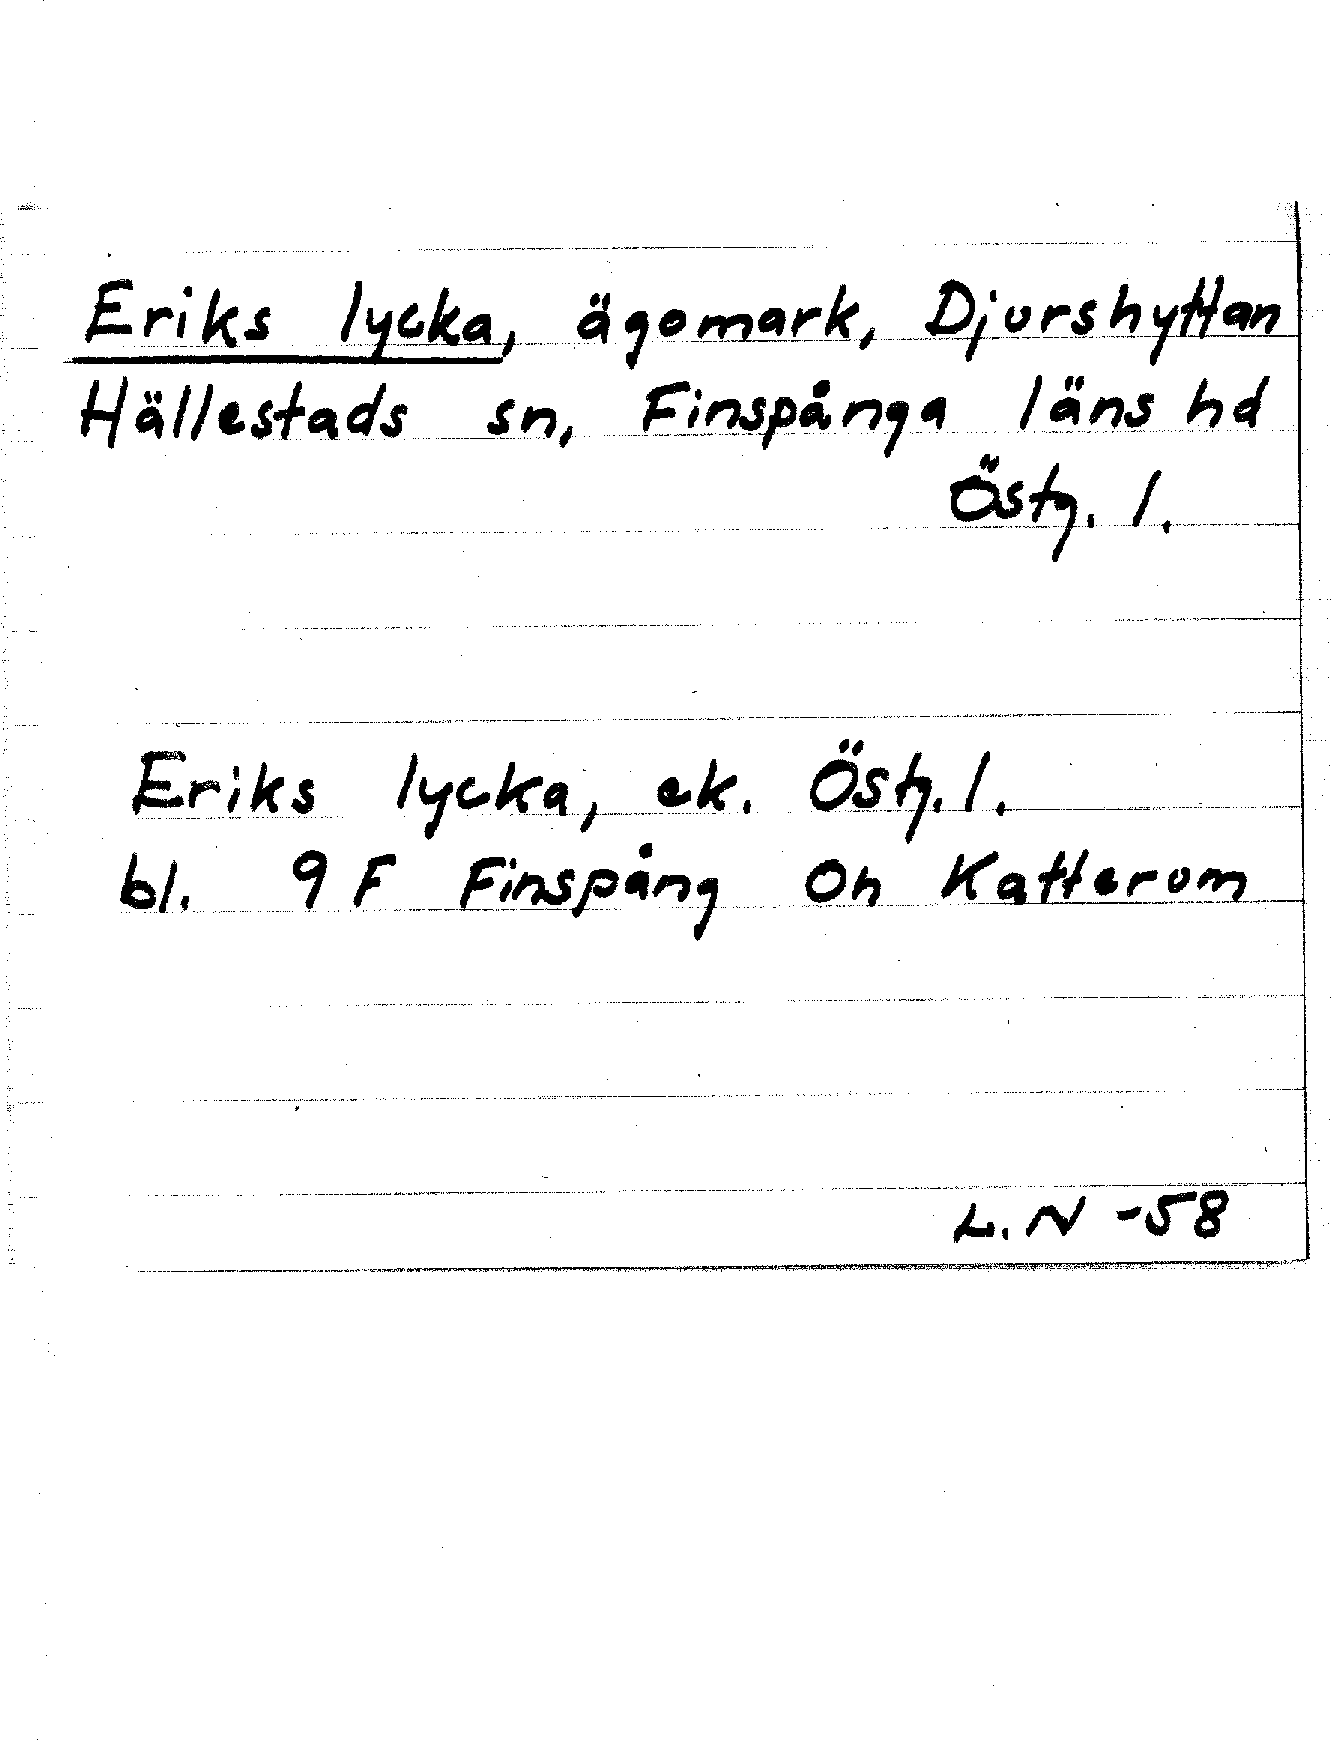 Eriks lycka, ägomark, Djurshyttan
Hällestads sn, Finspånga läns hd
Östg. l.
Eriks lycka, ek. Östg. l.
bl. 9 F Finspång Oh Katterum
L. N -58